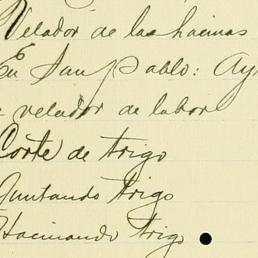 Velador de las hacinas
En San Pablo: Ay
velador de labor
Corte de trigo
Juntando trigo
Hacinando trigo